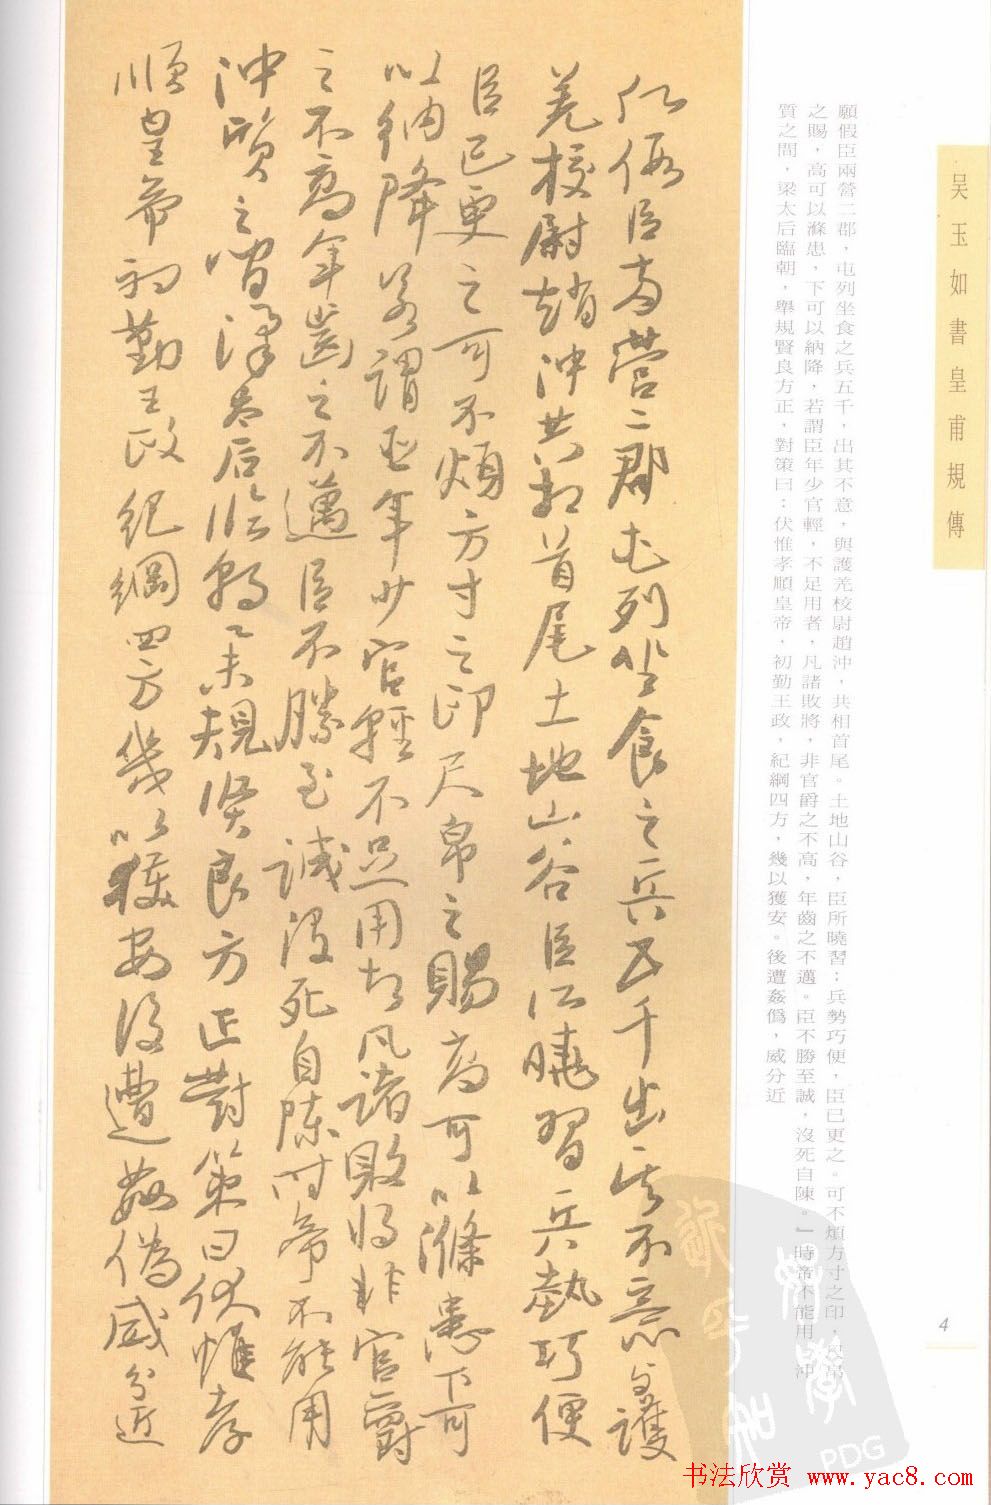 吴玉如書皇甫規傳
4
願假臣兩營二郡，屯列坐食之兵五千，出其不意，與護羌校尉趙沖，共相首尾。土地山谷，臣所曉習；兵勢巧便，臣已更之。可不煩方寸之印，尺帛
之賜，高可以滌患，下可以納降，若謂臣年少官輕，不足用者，凡諸敗將，非官爵之不高，年齒之不邁。臣不勝至誠，沒死自陳。」時帝不能用。沖
質之間，梁太后臨朝，舉規賢良方正，對策曰：伏惟孝順皇帝，初勤王政，紀綱四方，幾以獲安。後遭姦僞，威分近
願假臣兩營二郡屯列坐食之兵五千出其不意與護
羌校尉趙沖共相首尾土地山谷臣所曉習兵埶巧便
臣已更之可不煩方寸之印尺帛之賜高可以滌患下可
以納降若謂臣年少官輕不足用者凡諸敗將非官爵
之不高年齒之不邁臣不勝至誠沒死自陳時帝不能用
沖質之間梁太后臨朝舉規賢良方正對策曰伏惟孝
順皇帝初勤王政紀綱四方幾以獲安後遭姦偽威分近
PDG
书法欣赏 www.yac8.com